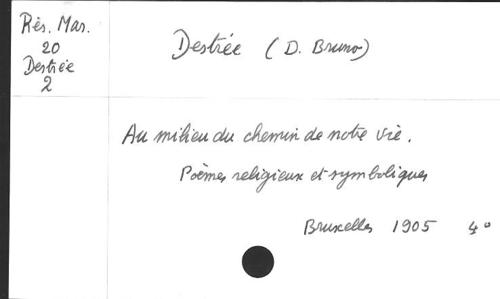 Rés. Mar.
20
Destrée
2
Destrée (D. Bruno)
Au milieu du chemin de notre vie.
Poèmes religieux et symboliques
Bruxelles 1905 4°